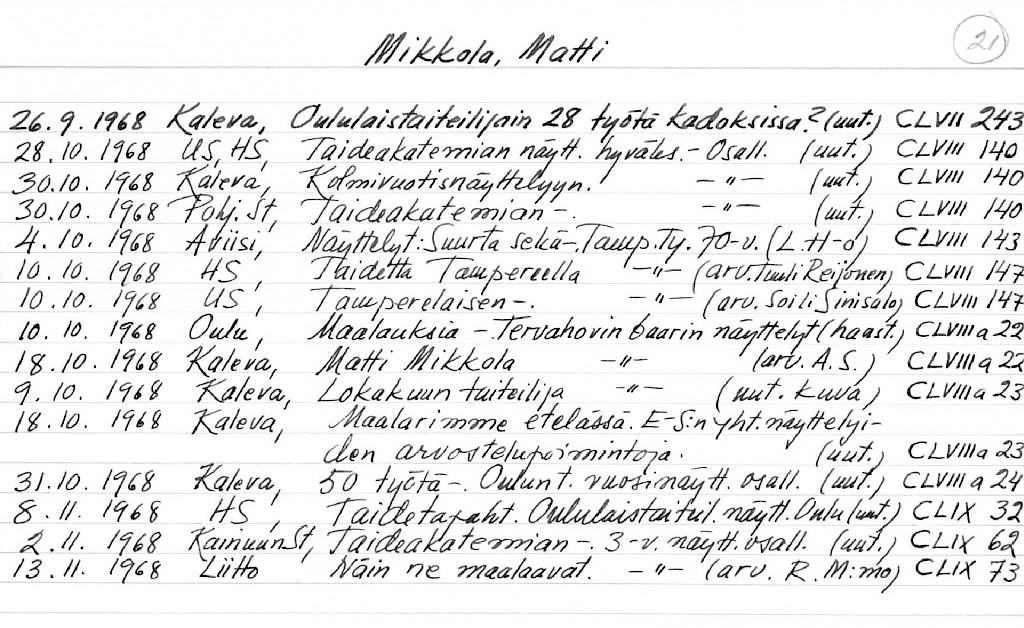 21
Mikkola, Matti
26.9.1968 Kaleva, Oululaistaiteilijain 28 työtä kadoksissa? (uut.) CLVII 243
28.10.1968 US, HS, Taideakatemian näytt. hyväks. - Osall. (uut.) CLVIII 140
30.10.1968 Kaleva, Kolmivuotisnäyttelyyn. -"- (uut.) CLVIII 140
30.10.1968 Pohj.St, Taideakatemian -. -"- (uut.) CLVIII 140
4.10.1968 Aviisi, Näyttelyt: Suurta sekä -, Tamp.Ty. 70-v. (L.H-o) CLVIII 143
10.10.1968 HS, Taidetta Tampereella -"- (arv. Tuuli Reijonen) CLVIII 147
10.10.1968 US, Tamperelaisen -. -"- (arv. Soili Sinisalo) CLVIII 147
10.10.1968 Oulu, Maalauksia - Tervahovin baarin näyttelyt (haast.) CLVIIIa 22
18.10.1968 Kaleva, Matti Mikkola -"- (arv. A.S.) CLVIIIa 22
9.10.1968 Kaleva, Lokakuun taiteilija -"- (uut. kuva) CLVIIIa 23
18.10.1968 Kaleva, Maalarimme etelässä. E-S:n yht. näyttelyi-
den arvostelupoimintoja. (uut.) CLVIIIa 23
31.10.1968 Kaleva, 50 työtä -. Oulun t. vuosinäytt. osall. (uut.) CLVIIIa 24
8.11.1968 HS, Taidetapaht. Oululaistaiteil. näytt. Oulu (uut.) CLIX 32
2.11.1968 KainuunSt, Taideakatemian -. 3-v. näytt. osall. (uut.) CLIX 62
13.11.1968 Liitto Näin ne maalaavat. -"- (arv. R. M:mo) CLIX 73